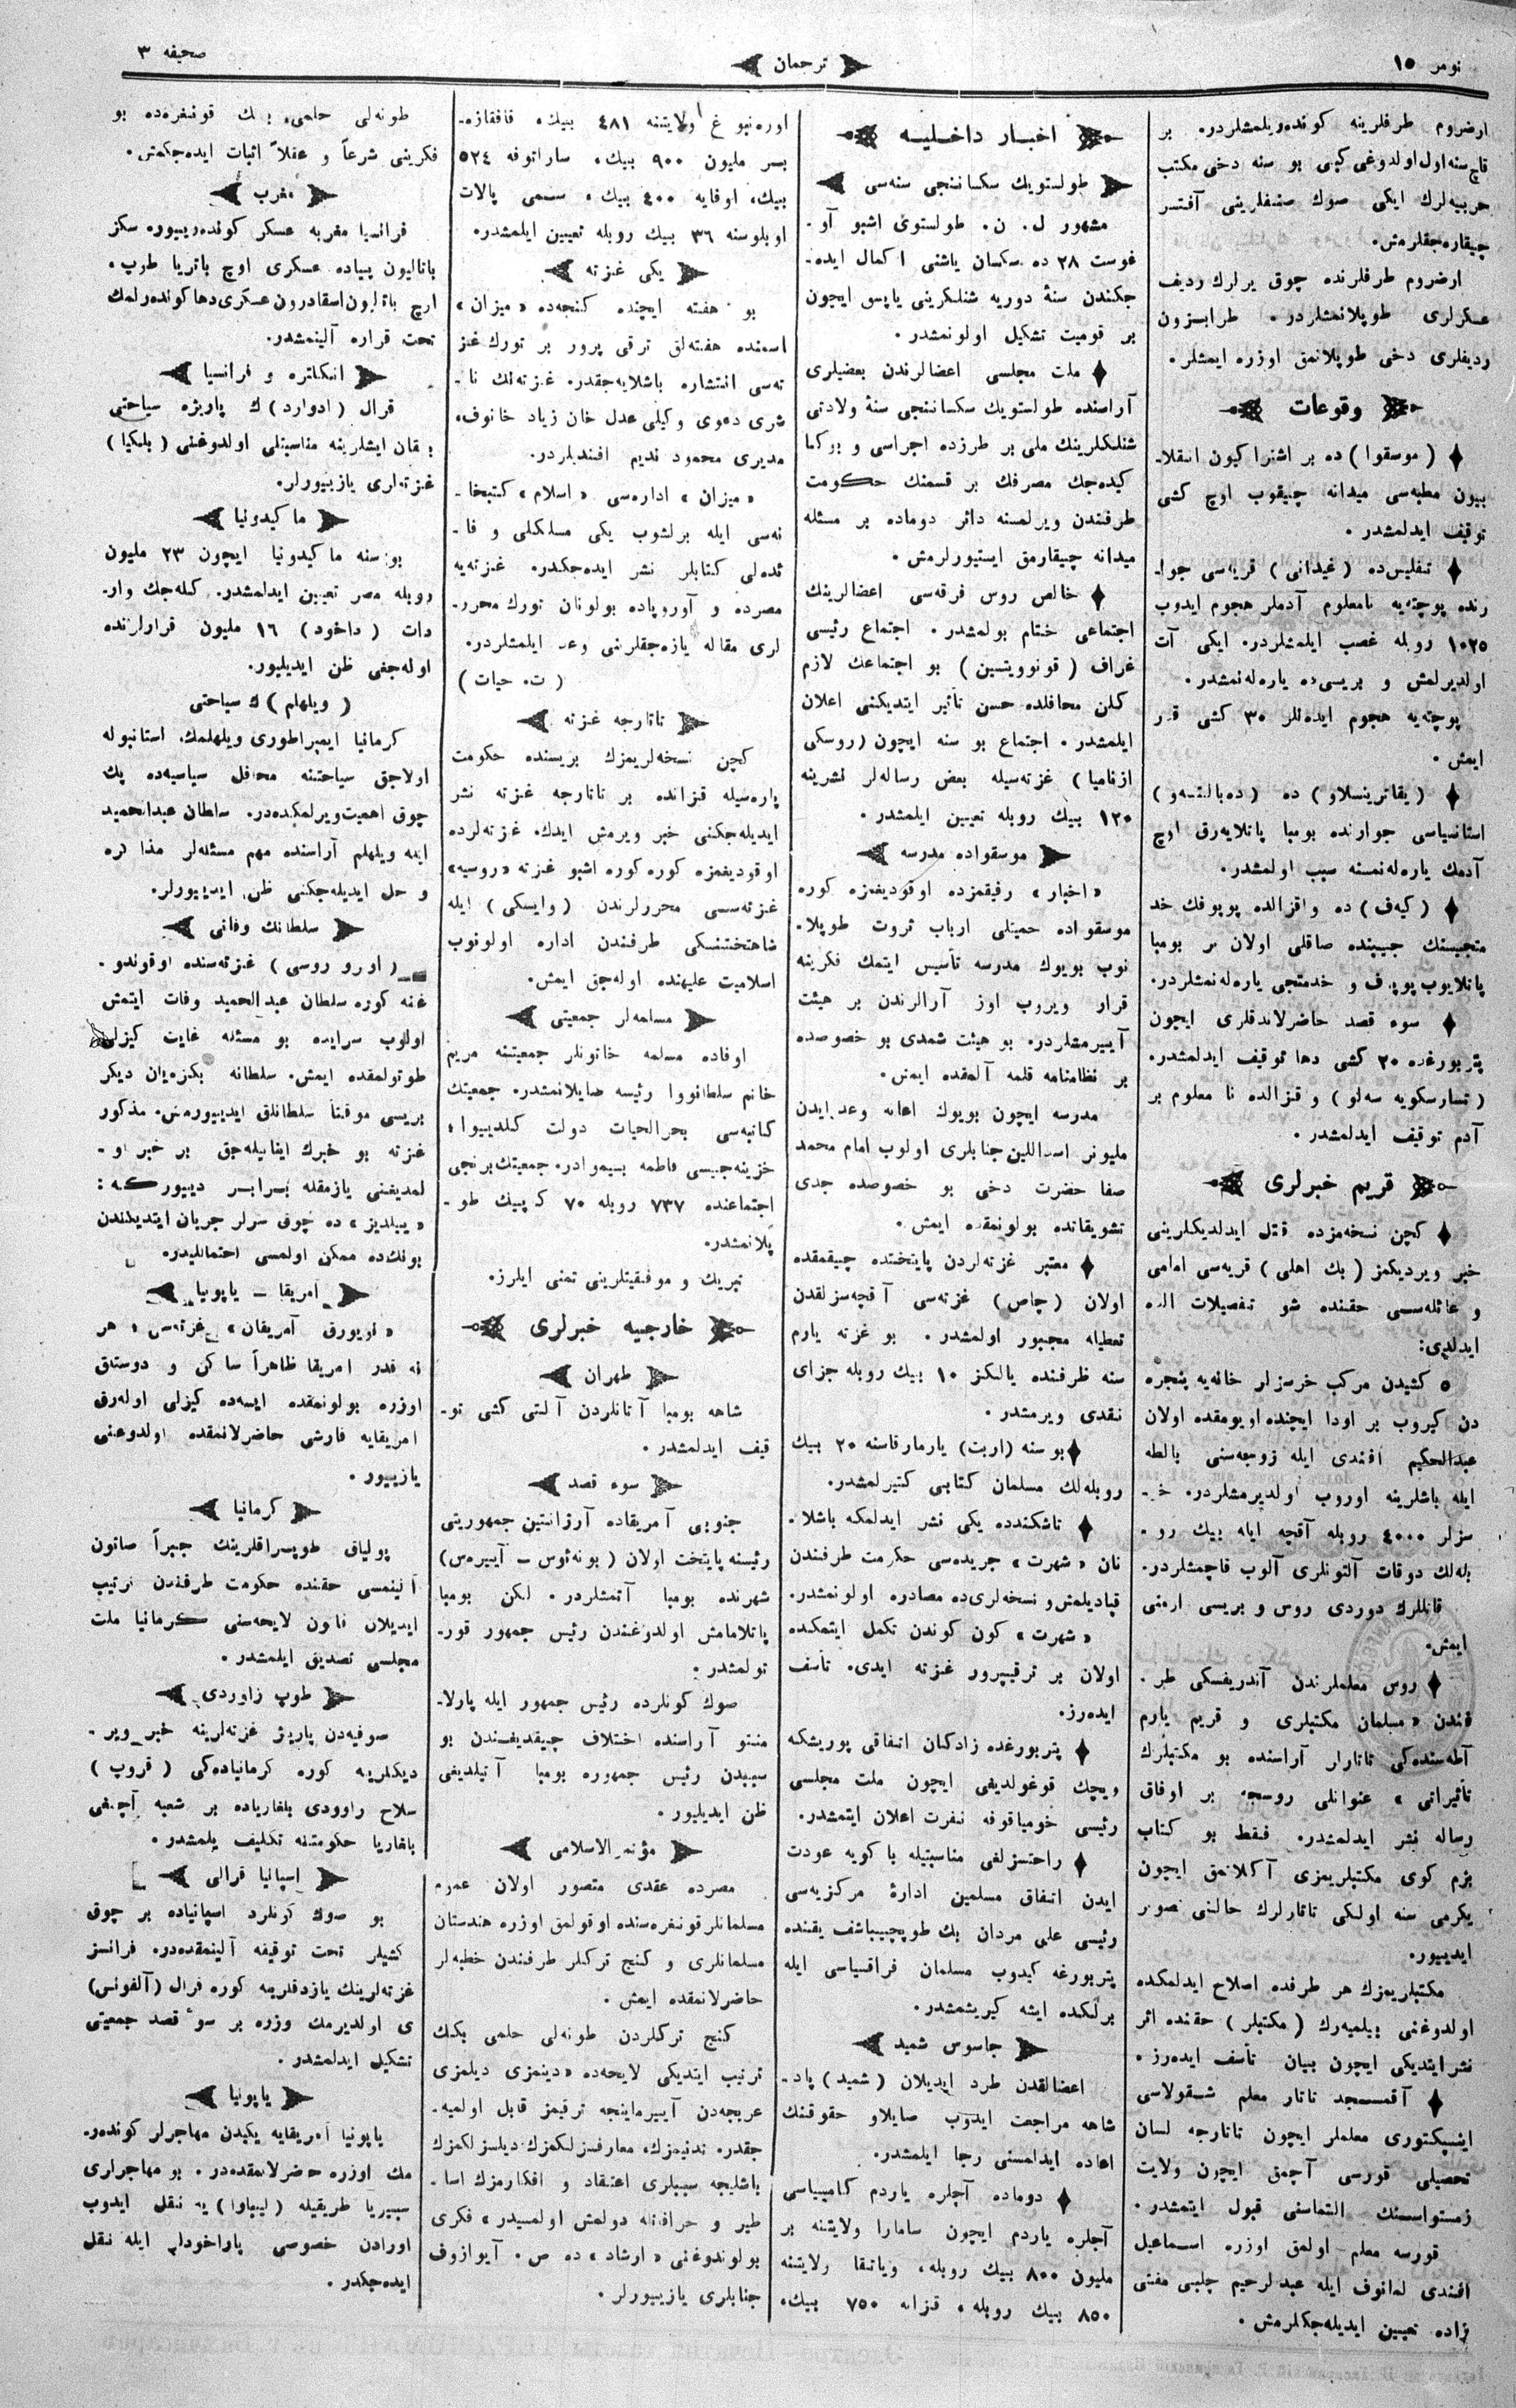 نومر ١٥
ترجمان
صحیفه ٣
ارضروم طرفلرینه کوندەریلمشلردر. بر
قاچ سنه اول اولدوغی کبی بو سنه دخی مکتب
حربیه‌لرك ایکی صوك صنفلرینی آفتسر
چیقاره‌جقلرمش.
ارضروم طرفلرنده چوق یرلرك ردیف
عسکرلری طوپلانمشلردر. طرابزون
ردیفلری دخی طوپلانمق اوزره ایمشلر.
وقوعات
(موسقوا) ده بر اشتراکیون انقلا-
بیون مطبعه‌سی میدانه چیقوب اوچ کشی
توقیف ایدلمشدر.
تفلیس‌ده (غیدانی) قریه‌سی جوا-
رنده پوچته‌یه نامعلوم آدملر هجوم ایدوب
١٠٢٥ روبله غصب ایلمشلردر. ایکی آت
اولدیرلمش و بریسی‌ده یاره‌له‌نمشدر.
پوچته‌یه هجوم ایدەنلر ٣٠ کشی قدر
ایمش.
(یقاترینسلاو) ده
استانسیاسی جوارنده بومبا پاتلایه‌رق اوچ
آدمك یاره‌له‌نمسنه سبب اولمشدر.
(کیه‌ف) ده واقزالده پوپوفك خد
متجیسنك جیبنده صاقلی اولان بر بومبا
پاتلایوب پوپوف و خدمتجی یاره‌له‌نمشلردر.
سوء قصد حاضرلاندقلری ایچون
پتربورغده ٢٠ کشی دها توقیف ایدلمشدر.
(تسارسکویه سه‌لو) و قزالده نا معلوم بر
آدم توقیف ایدلمشدر.
قریم خبرلری
کچن نسخه‌مزده قتل ایدلدیکلرینی
خبر ویردیکمز (بك اهلی) قریه‌سی امامی
و عائله‌سی حقنده شو تفصیلات اله
ایدلدی:
٥ کشیدن مرکب خرسزلر خانه‌یه پنجره
دن کیروب بر اودا ایچنده اویومقده اولان
عبدالحکیم افندی ایله زوجه‌سنی بالطه
ایله باشلرینه اوروب اولدیرمشلردر. خر-
سزلر ٤٠٠٠ روبله آقچه ایله بیك رو-
بله‌لك دوقات آلتونلری آلوب قاچمشلردر.
قاتللرك دوردی روس و بریسی ارمنی
ایمش.
روس معلملرندن آندریفسکی طر-
فندن «مسلمان مکتبلری و قریم یارم
آطه‌سنده‌کی تاتارلر آراسنده بو مکتبلرك
تأثیراتی» عنوانلی روسجه بر اوفاق
رساله نشر ایدلمشدر. فقط بو کتاب
بزم کوی مکتبلریمزی آکلانمق ایچون
یکرمی سنه اولکی تاتارلرك حالنی تصویر
ایدییور.
مکتبلریمزك هر طرفده اصلاح ایدلمکده
اولدوغنی بیلمیه‌رك (مکتبلر) حقنده اثر
نشر ایتدیکی ایچون بیان تأسف ایده‌رز.
آقمسجد تاتار معلم شقولاسی
اینسپکتوری معلملر ایچون تاتارجه لسان
تحصیلی قورسی آچمق ایچون ولایت
زمستواسنك التماسنی قبول ایتمشدر.
قورسه معلم اولمق اوزره اسماعیل
افندی لمانوف ایله عبدالرحیم چلبی مفتی
زاده تعیین ایدیله‌جکلرمش.
اخبار داخلیه
طولستویك سکسانتجی سنه‌سی
مشهور ل. ن. طولستوی اشبو آو-
غوست ٢٨ ده سکسان یاشنی اکمال ایده-
جکندن سنهٔ دوریه شنلکرینی یاپمق ایچون
بر قومیت تشکیل اولونمشدر.
ملت مجلسی اعضالرندن بعضیلری
آراسنده طولستویك سکساننجی سنهٔ ولادتی
شنلکلرینك ملی بر طرزده اجراسی و بوکا
کیده‌جك مصرفك بر قسمنك حکومت
طرفندن ویرلمسنه دائر دوماده بر مسئله
میدانه چیقارمق ایستیورلرمش.
خالص روس فرقه‌سی اعضالرینك
اجتماعی ختام بولمشدر. اجتماع رئیسی
غراف (قونوویتسین) بو اجتماعك لازم
کلن محافلده حسن تأثیر ایتدیکنی اعلان
ایلمشدر. اجتماع بو سنه ایچون (روسکی
ازنامیا) غزته‌سیله بعض رساله‌لر نشرینه
١٢٠ بیك روبله تعیین ایلمشدر.
موسقواده مدرسه
«اخبار» رفیقمزده اوقودیغمزه کوره
موسقواده حمیتلی ارباب ثروت طوپلا-
نوب بویوك مدرسه تأسیس ایتمك فکرینه
قرار ویروب اوز آرالرندن بر هیئت
آییرمشلردر. بو هیئت شمدی بو خصوصده
بر نظامنامه قلمه آلمقده ایمش.
مدرسه ایچون بویوك اعانه وعد ایدن
ملیونر اسداللین جنابلری اولوب امام محمد
صفا حضرت دخی بو خصوصده جدی
تشویقاتده بولونمقده ایمش.
معتبر غزته‌لردن پایتختده چیقمقده
اولان (چاص) غزته‌سی آقچه‌سزلقدن
تعطیله مجبور اولمشدر. بو غزته یارم
سنه ظرفنده یالکز ١٠ بیك روبله جزای
نقدی ویرمشدر.
بو سنه (اربت) یارمارقاسنه ٢٠ بیك
روبله‌لك مسلمان کتابی کتیرلمشدر.
تاشکندده یکی نشر ایدلمکه باشلا-
نان «شهرت» جریده‌سی حکومت طرفندن
قپادیلمش و نسخه‌لری‌ده مصادره اولونمشدر.
«شهرت» کون کوندن تکمل ایتمکده
اولان بر ترقیپرور غزته ایدی. تأسف
ایده‌رز.
پتربورغده زادکان اتفاقی پوریشکه
ویچك قوغولدیغی ایچون ملت مجلسی
رئیسی خومیاقوفه نفرت اعلان ایتمشدر.
راحتسزلغی مناسبتیله باکویه عودت
ایدن اتفاق مسلمین ادارهٔ مرکزیه‌سی
رئیسی علی مردان بك طوپچیباشف یقنده
پتربورغه کیدوب مسلمان فراقسیاسی ایله
برلکده ایشه کیریشمشدر.
جاسوس شمید
اعضالقدن طرد ایدیلان (شمید) پاد-
شاهه مراجعت ایدوب صایلاو حقوقنك
اعاده ایدلمسنی رجا ایلمشدر.
دوماده آچلره یاردم کامیسیاسی
آچلره یاردم ایچون سامارا ولایتنه بر
ملیون ٨٠٠ بیك روبله، ویاتقا ولایتنه
٨٥٠ بیك روبله، قزانه ٧٥٠ بیك،
اوره‌نبورغ ولایتنه ٤٨١ بیك، قافقازه-
بر ملیون ٩٠٠ بیك، ساراتوفه ٥٢٤
بیك، اوفایه ٤٠٠ بیك، سمی پالات
اوبلوسنه ٣٦ بیك روبله تعیین ایلمشدر.
یکی غزته
بو هفته ایچنده کنجه‌ده «میزان»
اسمنده هفته‌لق ترقی پرور بر تورك غز
ته‌سی انتشاره باشلایه‌جقدر. غزته‌نك نا-
شری دعوی وکیلی عدل خان زیاد خانوف،
مدیری محمود ندیم افندیلردر.
«میزان» اداره‌سی «اسلام» کتبخا-
نه‌سی ایله برلشوب یکی مسلکلی و فا-
ئده‌لی کتابلر نشر ایده‌جکدر. غزته‌یه
مصرده و آوروپاده بولونان تورك محرر-
لری مقاله یازه‌جقلرینی وعد ایلمشلردر.
(ت. حیات)
تاتارجه غزته
کچن نسخه‌لریمزك بریسنده حکومت
پاره‌سیله قزانده بر تاتارجه غزته نشر
ایدیله‌جکنی خبر ویرمش ایدك. غزته‌لرده
اوقودیغمزه کوره کوره اشبو غزته «روسیه»
غزته‌سی محررلرندن (وایسکی) ایله
شاهتختنسکی طرفندن اداره اولونوب
اسلامیت علیهنده اوله‌جق ایمش.
مسلمه‌لر جمعیتی
اوفاده مسلمه خاتونلر جمعیتنه مریم
خانم سلطانووا رئیسه صایلانمشدر. جمعیتك
کاتبه‌سی بحرالحیات دولت کلدییوا،
خزینه‌جییسی فاطمه بسیموادر. جمعیتك برنجی
اجتماعنده ٧٣٧ روبله ٧٠ کپیك طو-
پلانمشدر.
تبریك و موفقیتلرینی تمنی ایلرز.
خارجیه خبرلری
طهران
شاهه بومبا آتانلردن آلتی کشی تو-
قیف ایدلمشدر.
سوء قصد
جنوبی آمریقاده آرژانتین جمهوریتی
رئیسنه پایتخت اولان (بونه‌ئوس – آییره‌س)
شهرنده بومبا آتمشلردر. لکن بومبا
پاتلامامش اولدوغندن رئیس جمهور قور-
تولمشدر.
صوك کونلرده رئیس جمهور ایله پارلا-
منتو آراسنده اختلاف چیقدیغندن بو
سببدن رئیس جمهوره بومبا آتیلدیغی
ظن ایدیلیور.
مؤتمر الاسلامی
مصرده عقدی متصور اولان عموم
مسلمانلر قونغره‌سنده اوقولمق اوزره هندستان
مسلمانلری و کنج ترکلر طرفندن خطبه‌لر
حاضرلانمقده ایمش.
کنج ترکلردن طونه‌لی حلمی بکك
ترتیب ایتدیکی لایحه‌ده «دینمزی دیلمزی
عربجه‌دن آییرماینجه ترقیمز قابل اولمیه-
جقدر. تدنیمزك، معارفسزلکمزك دیلسزلکمزك
باشلیجه سببلری اعتقاد و افکارمزك اسا-
طیر و خرافاتله دولمش اولمسیدر» فکری
بولوندوغنی «ارشاد» ده ص. آیوازوف
جنابلری یازییورلر.
طونه‌لی حلمی بك قونغره‌ده بو
فکرینی شرعاً و عقلاً اثبات ایده‌جکمش.
مغرب
فرانسیا مغربه عسکر کونده‌رییور. سکز
باتالیون پیاده عسکری اوچ باتریا طوپ،
اوچ باتالیون اسقادرون عسکری دها کونده‌رلمك
تحت قراره آلینمشدر.
انکلتره و فرانسیا
قرال (ادوارد)ك پاریژه سیاحتی
بالقان ایشلرینه مناسبتلی اولدوغنی (بلمکیا)
غزته‌لری یازییورلر.
ماکیدونیا
بو سنه ماکیدونیا ایچون ٢٣ ملیون
روبله مصرف تعیین ایدلمشدر. کله‌جك وار-
دات (داخود) ١٦ ملیون قرارلرنده
اوله‌جغی ظن ایدیلیور.
(ویلهلم)ك سیاحتی
کرمانیا ایمپراطوری ویلهلمك، استانبوله
اولاجق سیاحتنه محافل سیاسیه‌ده پك
چوق اهمیت ویرلمکده‌در. سلطان عبدالحمید
ایله ویلهلم آراسنده مهم مسئله‌لر مذاکره
و حل ایدیله‌جکنی ظن ایدییورلر.
سلطانك وفاتی
غزته‌سنده اوقوندو-
غنه کوره سلطان عبدالحمید وفات ایتمش
اولوب سرایده بو مسئله غایت کیزلی
طوتولمقده ایمش. سلطانه بکزه‌یان دیکر
بریسی موقتاً سلطانلق ایدییورمش. مذکور
غزته بو خبرك اینانیله‌جق بر خبر او-
لمدیغنی یازمقله برابر دییورکه:
«ییلدیز» ده چوق سرلر جریان ایتدیکندن
بونك‌ده ممکن اولمسی احتمالیدر.
امریقا – یاپونیا
«نیویورق آمریقان» غزته‌سی، هر
نه قدر امریقا ظاهراً ساکن و دوستلق
اوزره بولونمقده ایسه‌ده کیزلی اوله‌رق
امریقایه قارشی حاضرلانمقده اولدوغنی
یازییور.
کرمانیا
پولیاق طوپراقلرینك جبراً صاتون
آلینمسی حقنده حکومت طرفندن ترتیب
ایدیلان قانون لایحه‌سنی کرمانیا ملت
مجلسی تصدیق ایلمشدر.
طوپ زاوودی
صوفیه‌دن پاریژ غزته‌لرینه خبر ویر-
دیکلرینه کوره کرمانیاده‌کی (قروپ)
سلاح زاوودی بلغاریاده بر شعبه آچمغی
بلغاریا حکومتنه تکلیف ایلمشدر.
اسپانیا قرالی
بو صوك کونلرده اسپانیاده بر چوق
کشیلر تحت توقیفه آلینمقده‌در. فرانسز
غزته‌لرینك یازدقلرینه کوره قرال (آلفونس)
ی اولدیرمك اوزره بر سوء قصد جمعیتی
تشکیل ایدلمشدر.
یاپونیا
یاپونیا امریقایه یکیدن مهاجرلر کونده‌ر-
مك اوزره حاضرلانمقده‌در. بو مهاجرلری
سیبیریا طریقیله (لیباوا) یه نقل ایدوب
اورادن خصوصی پاراخودلر ایله نقل
ایده‌جکدر.